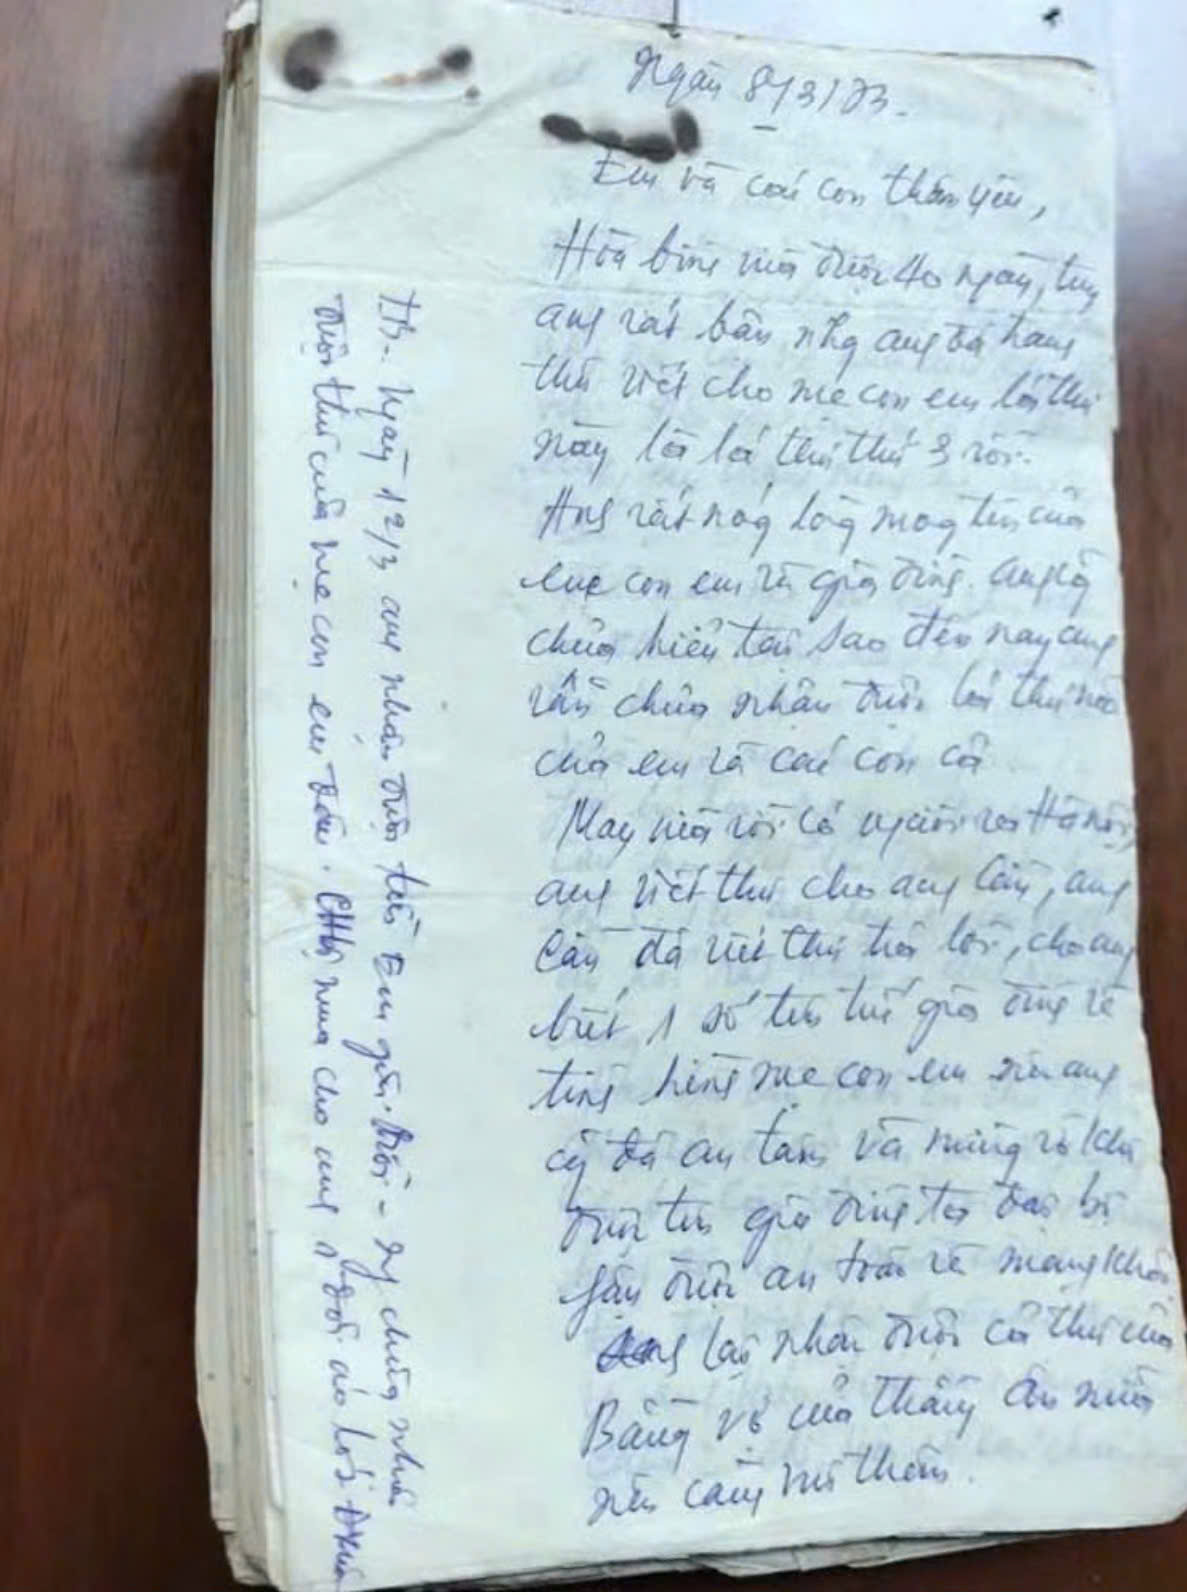 Ngày 8/3/73.
Em và các con thân yêu,
Hòa bình mới được 40 ngày, tuy
ang rất bận nhg ang đã hang
thư viết cho mẹ con em lá thư
này là lá thư thứ 3 rồi.
Ang rất nóg lòg mog tin của
mẹ con em và gia đình. anh cg
chưa hiểu tại sao đến nay ang
vẫn chưa nhận được lá thư nào
của em và các con cả
May mà rồi có người ra Hà nội,
ang viết thư cho ang Cầu, ang
Cầu đã viết thư trả lời, cho ang
biết 1 số tin tức gia đình và
tình hình mẹ con em nên ang
cg đã an tâm và mừng rỡ khi
được tin gia đình ta đại bộ
phận được an toàn và mạnh khỏe
Ang lại nhận được cả thư của
Bằng vợ của thằng Ân nữa
nên càng vui thêm.
TB - Ngày 12/3 ang nhận được thư Em gửi - chưa nhận
được thư của mẹ con em đâu. Chị mua cho ang 1 đôi áo lót